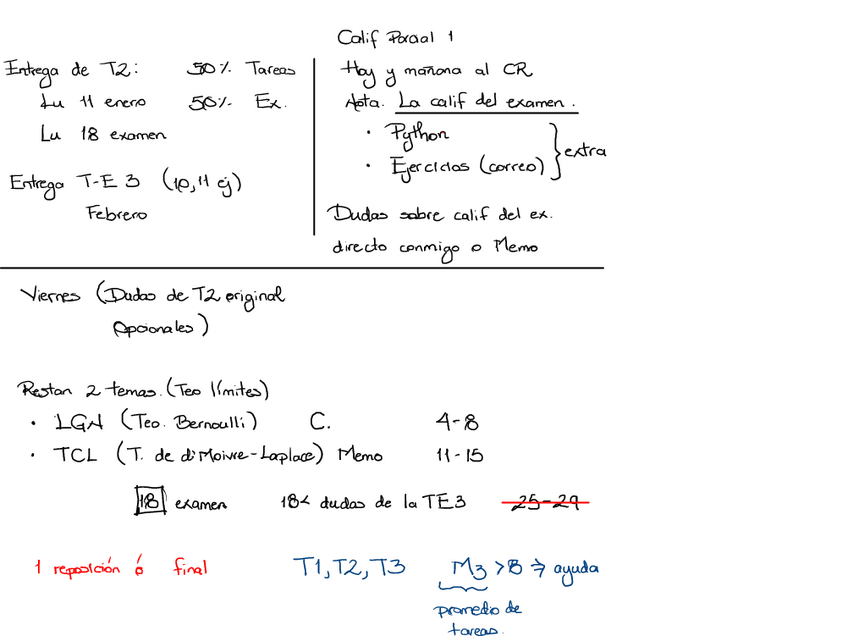 Entrega de T2: 50% Tareas
Lu 11 enero 50% Ex.
Lu 18 examen
Entrega T-E 3 (10, 11 ej)
Febrero
Calif Parcial 1
Hoy y mañana al CR
Nota. La calif del examen.
• Python
• Ejercicios (correo) } extra
Dudas sobre calif del ex.
directo conmigo o Memo
Viernes (Dudas de T2 original
opcionales)
Restan 2 temas. (Teo límites)
• LGN (Teo. Bernoulli) C. 4-8
• TCL (T. de diMoivre-Laplace) Memo 11-15
18 examen 18< dudas de la TE3 25-29
1 reposición ó final T1, T2, T3 M3 >8 ⇒ ayuda
promedio de
tareas.